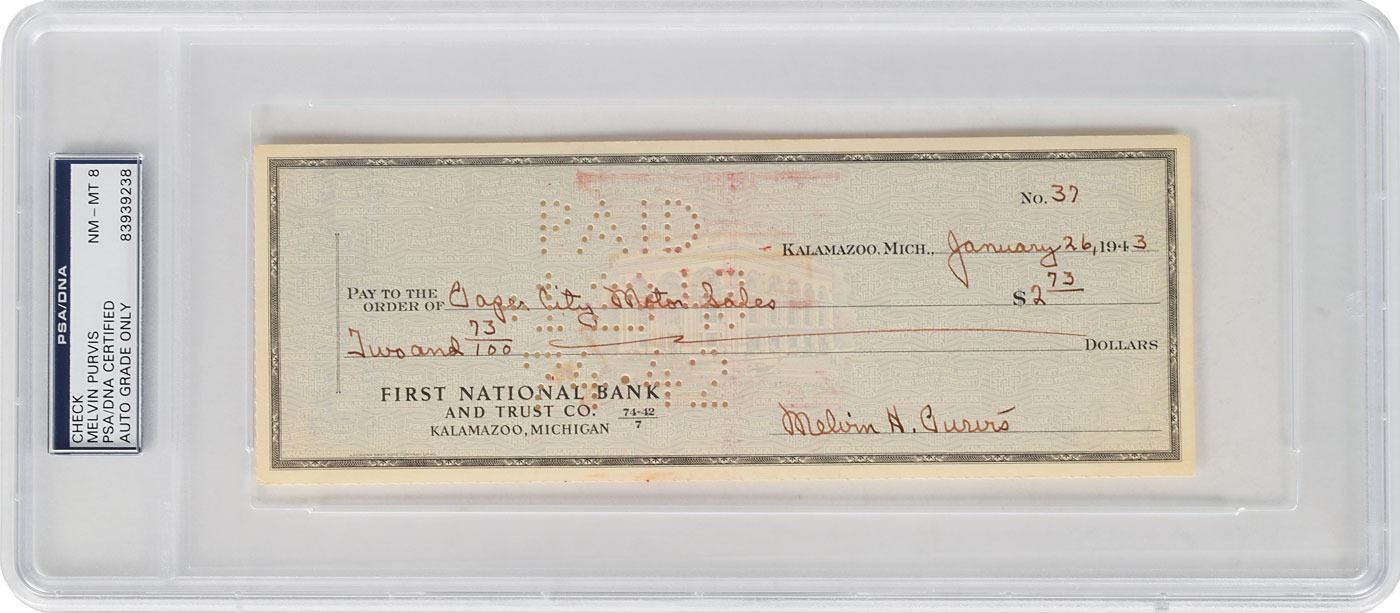 PSA/DNA
CHECK
MELVIN PURVIS
PSA/DNA CERTIFIED
AUTO GRADE ONLY
NM – MT 8
83939238
PAID
No. 37
KALAMAZOO, MICH., January 26, 1943
PAY TO THE
ORDER OF Paper City Motor Sales $2 73
Two and 73/100 DOLLARS
FIRST NATIONAL BANK
AND TRUST CO. 74-42/7
KALAMAZOO, MICHIGAN
Melvin H. Purvis